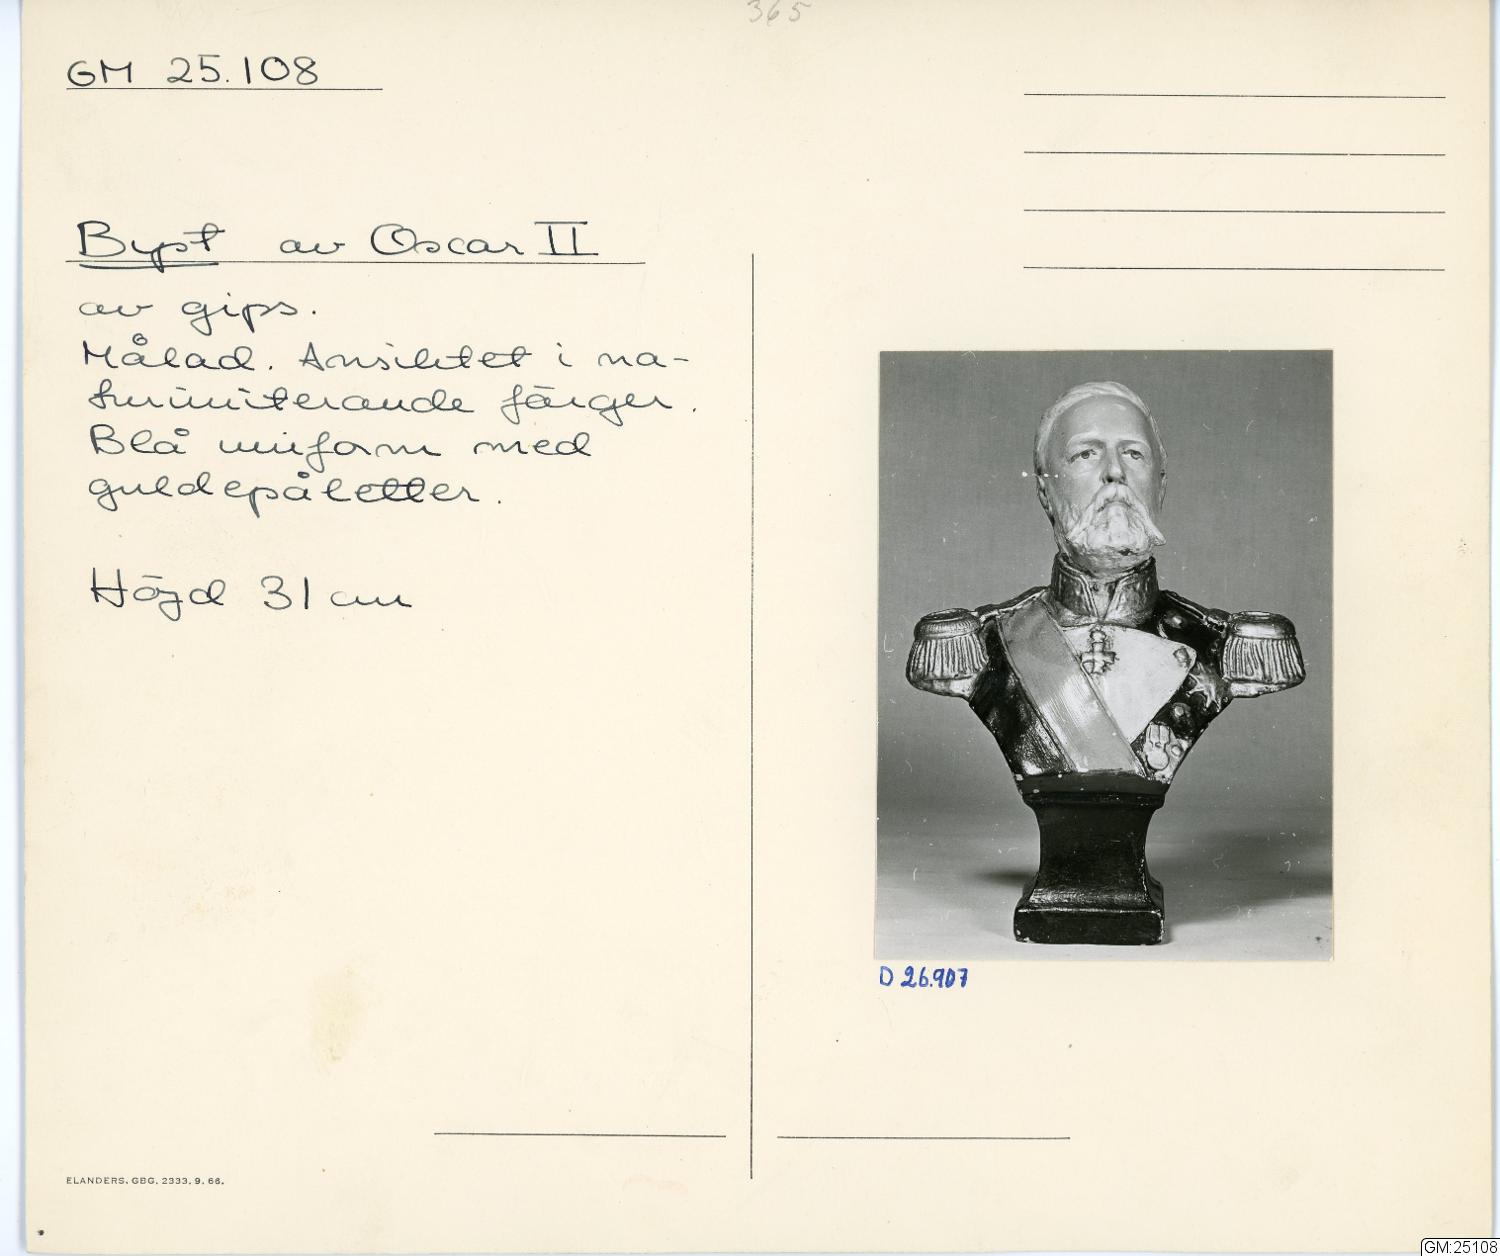 365
GM 25.108
Byst av Oscar II
av gips.
Målad. Ansiktet i na-
turimiterande färger.
Blå uniform med
guldepåletter.
Höjd 31 cm
D 26.907
ELANDERS, GBG, 2333, 9. 66.
GM:25108